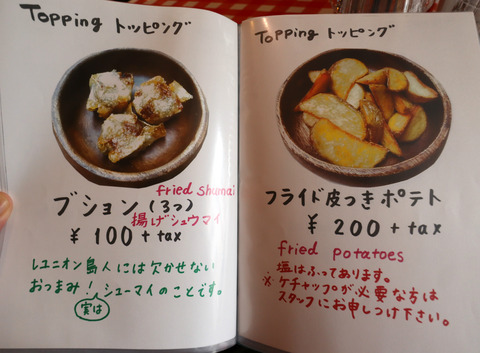 Topping トッピング
fried shumai
ブション(3つ)
揚げシュウマイ
¥ 100 + tax
レユニオン島人には欠かせない
おつまみ!シューマイのことです。
実は
Topping トッピング
フライド皮つきポテト
¥ 200 + tax
fried potatoes
塩はふってあります。
※ケチャップが必要な方は
スタッフにお申しつけ下さい。